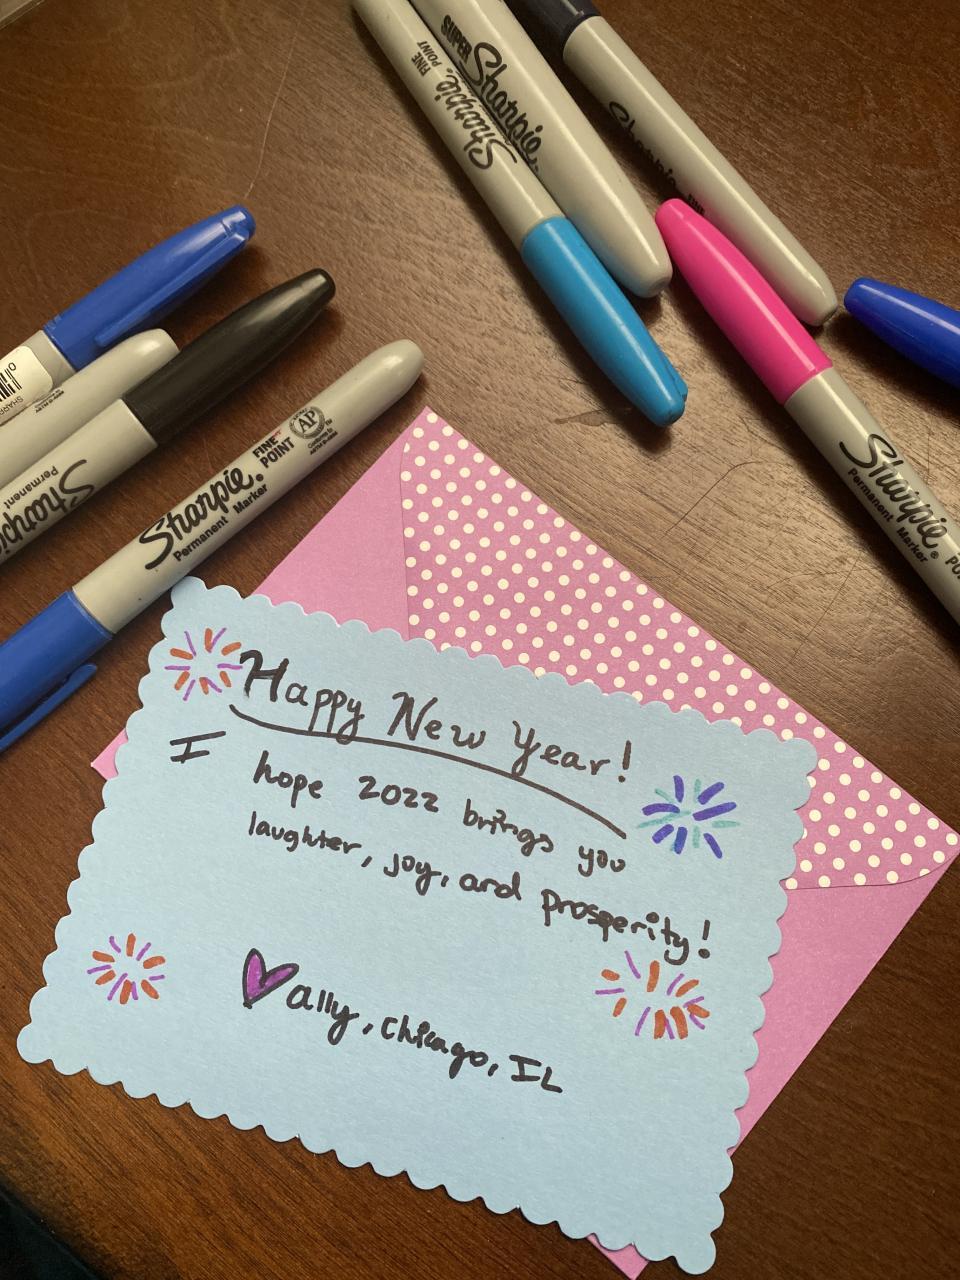 SUPER
Sharpie.
FINE
POINT
Sharpie.
Sharpie
FINE
Sharpie
Permanent
Sharpie.
Permanent Marker
FINE
POINT
AP
Sharpie.
Permanent Marker
Happy New Year!
I hope 2022 brings you
laughter, joy, and prosperity!
ally, Chicago, IL